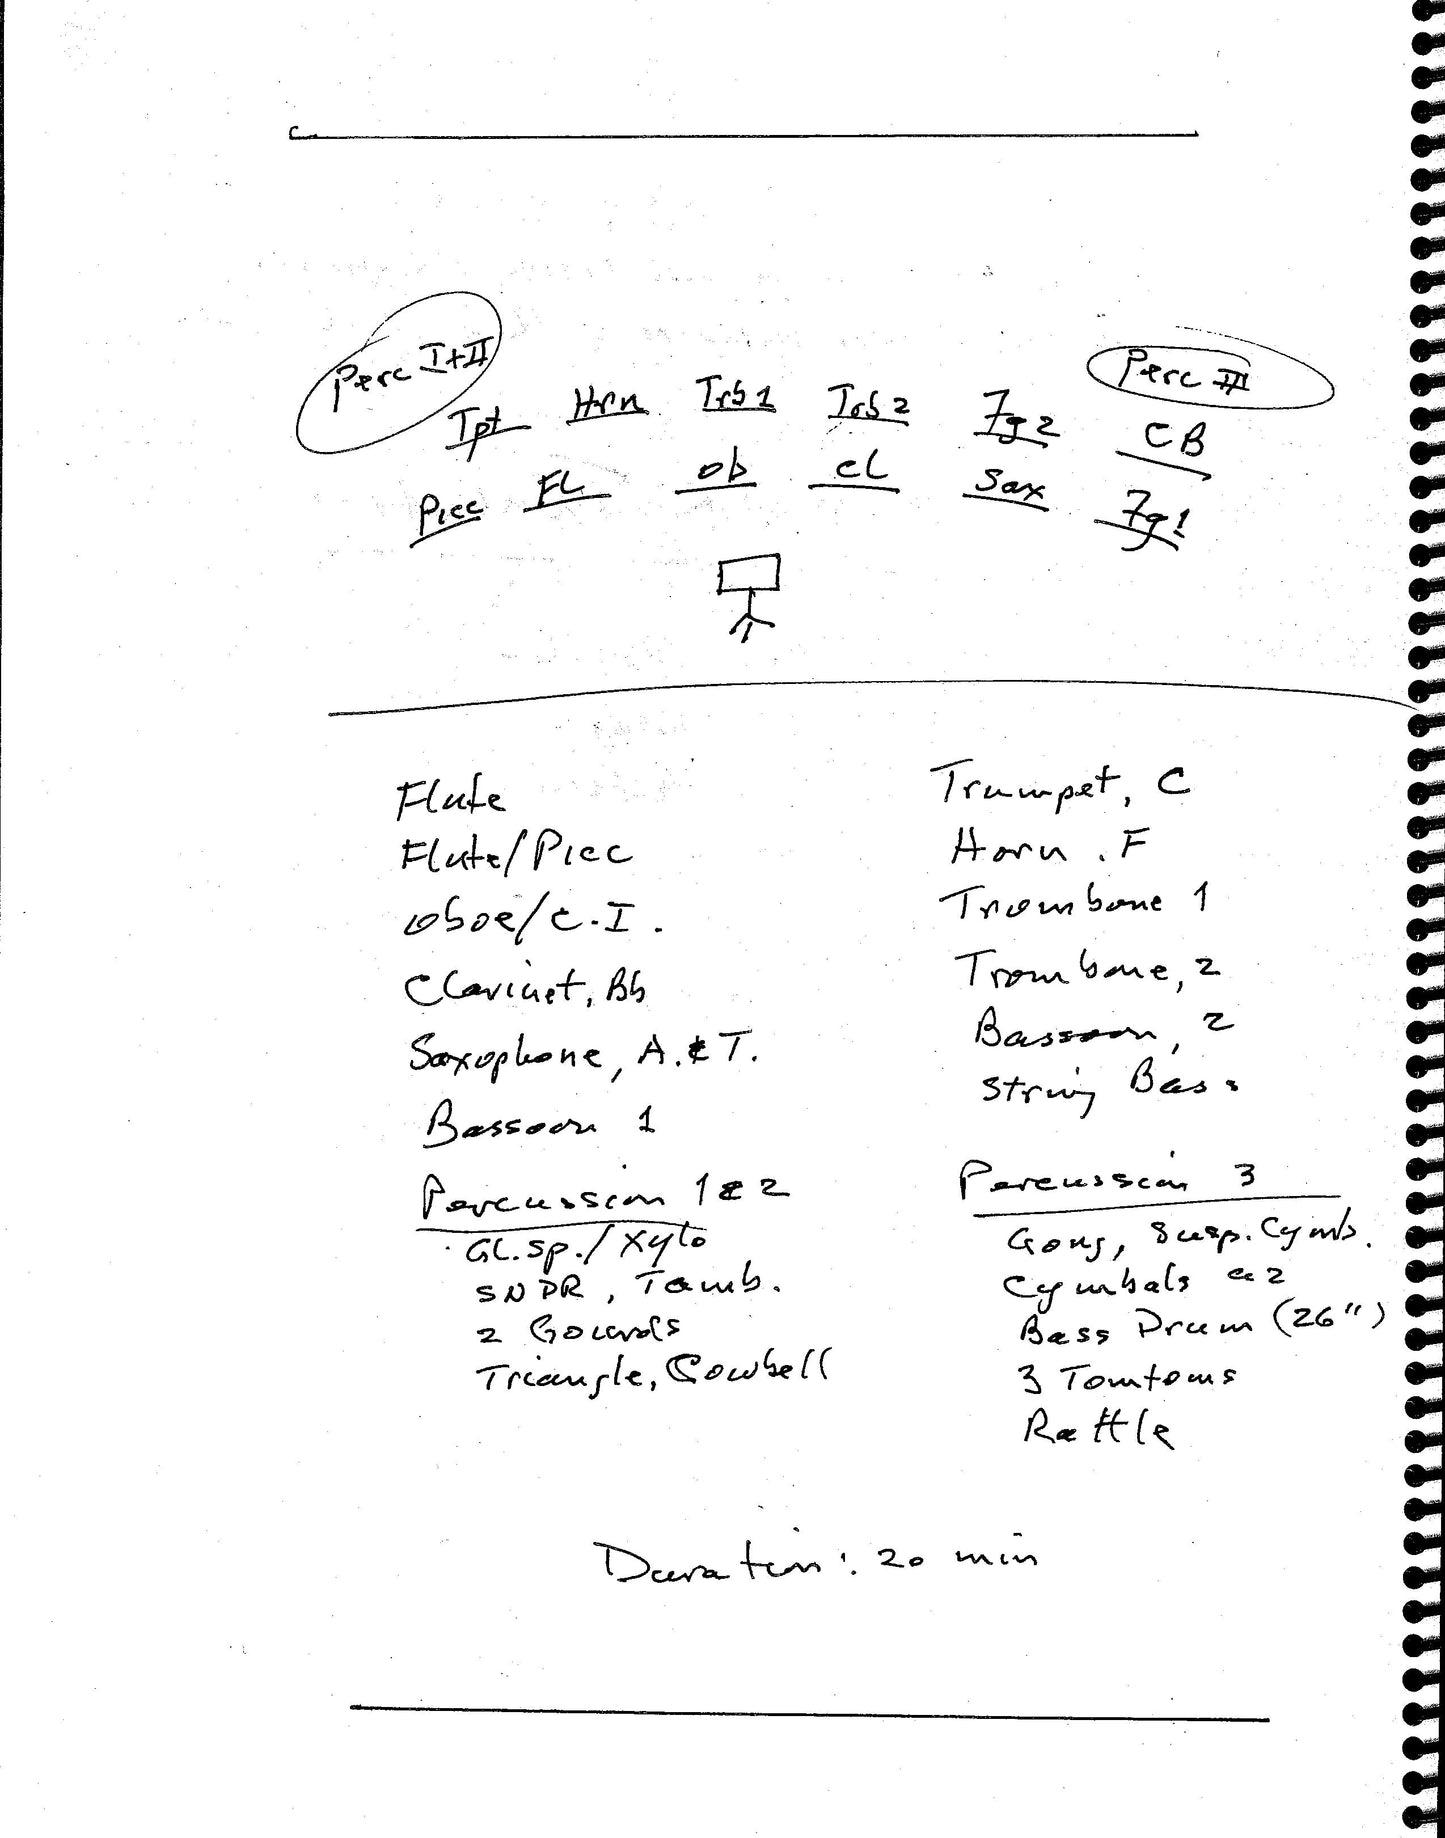 Perc I+II
Perc III
Tpt Hrn Trb 1 Trb 2 Fg 2 CB
Picc FL ob cl Sax Fg 1
Flute
Flute/Picc
Oboe/E.I.
Clarinet, Bb
Saxophone, A. & T.
Bassoon 1
Percussion 1 & 2
Gl.sp./Xylo
SNDR, Tamb.
2 Gourds
Triangle, Cowbell
Trumpet, C
Horn. F
Trombone 1
Trombone, 2
Bassoon, 2
String Bass
Percussion 3
Gong, Susp. Cymb.
Cymbals a2
Bass Drum (26")
3 Tomtoms
Rattle
Duration: 20 min